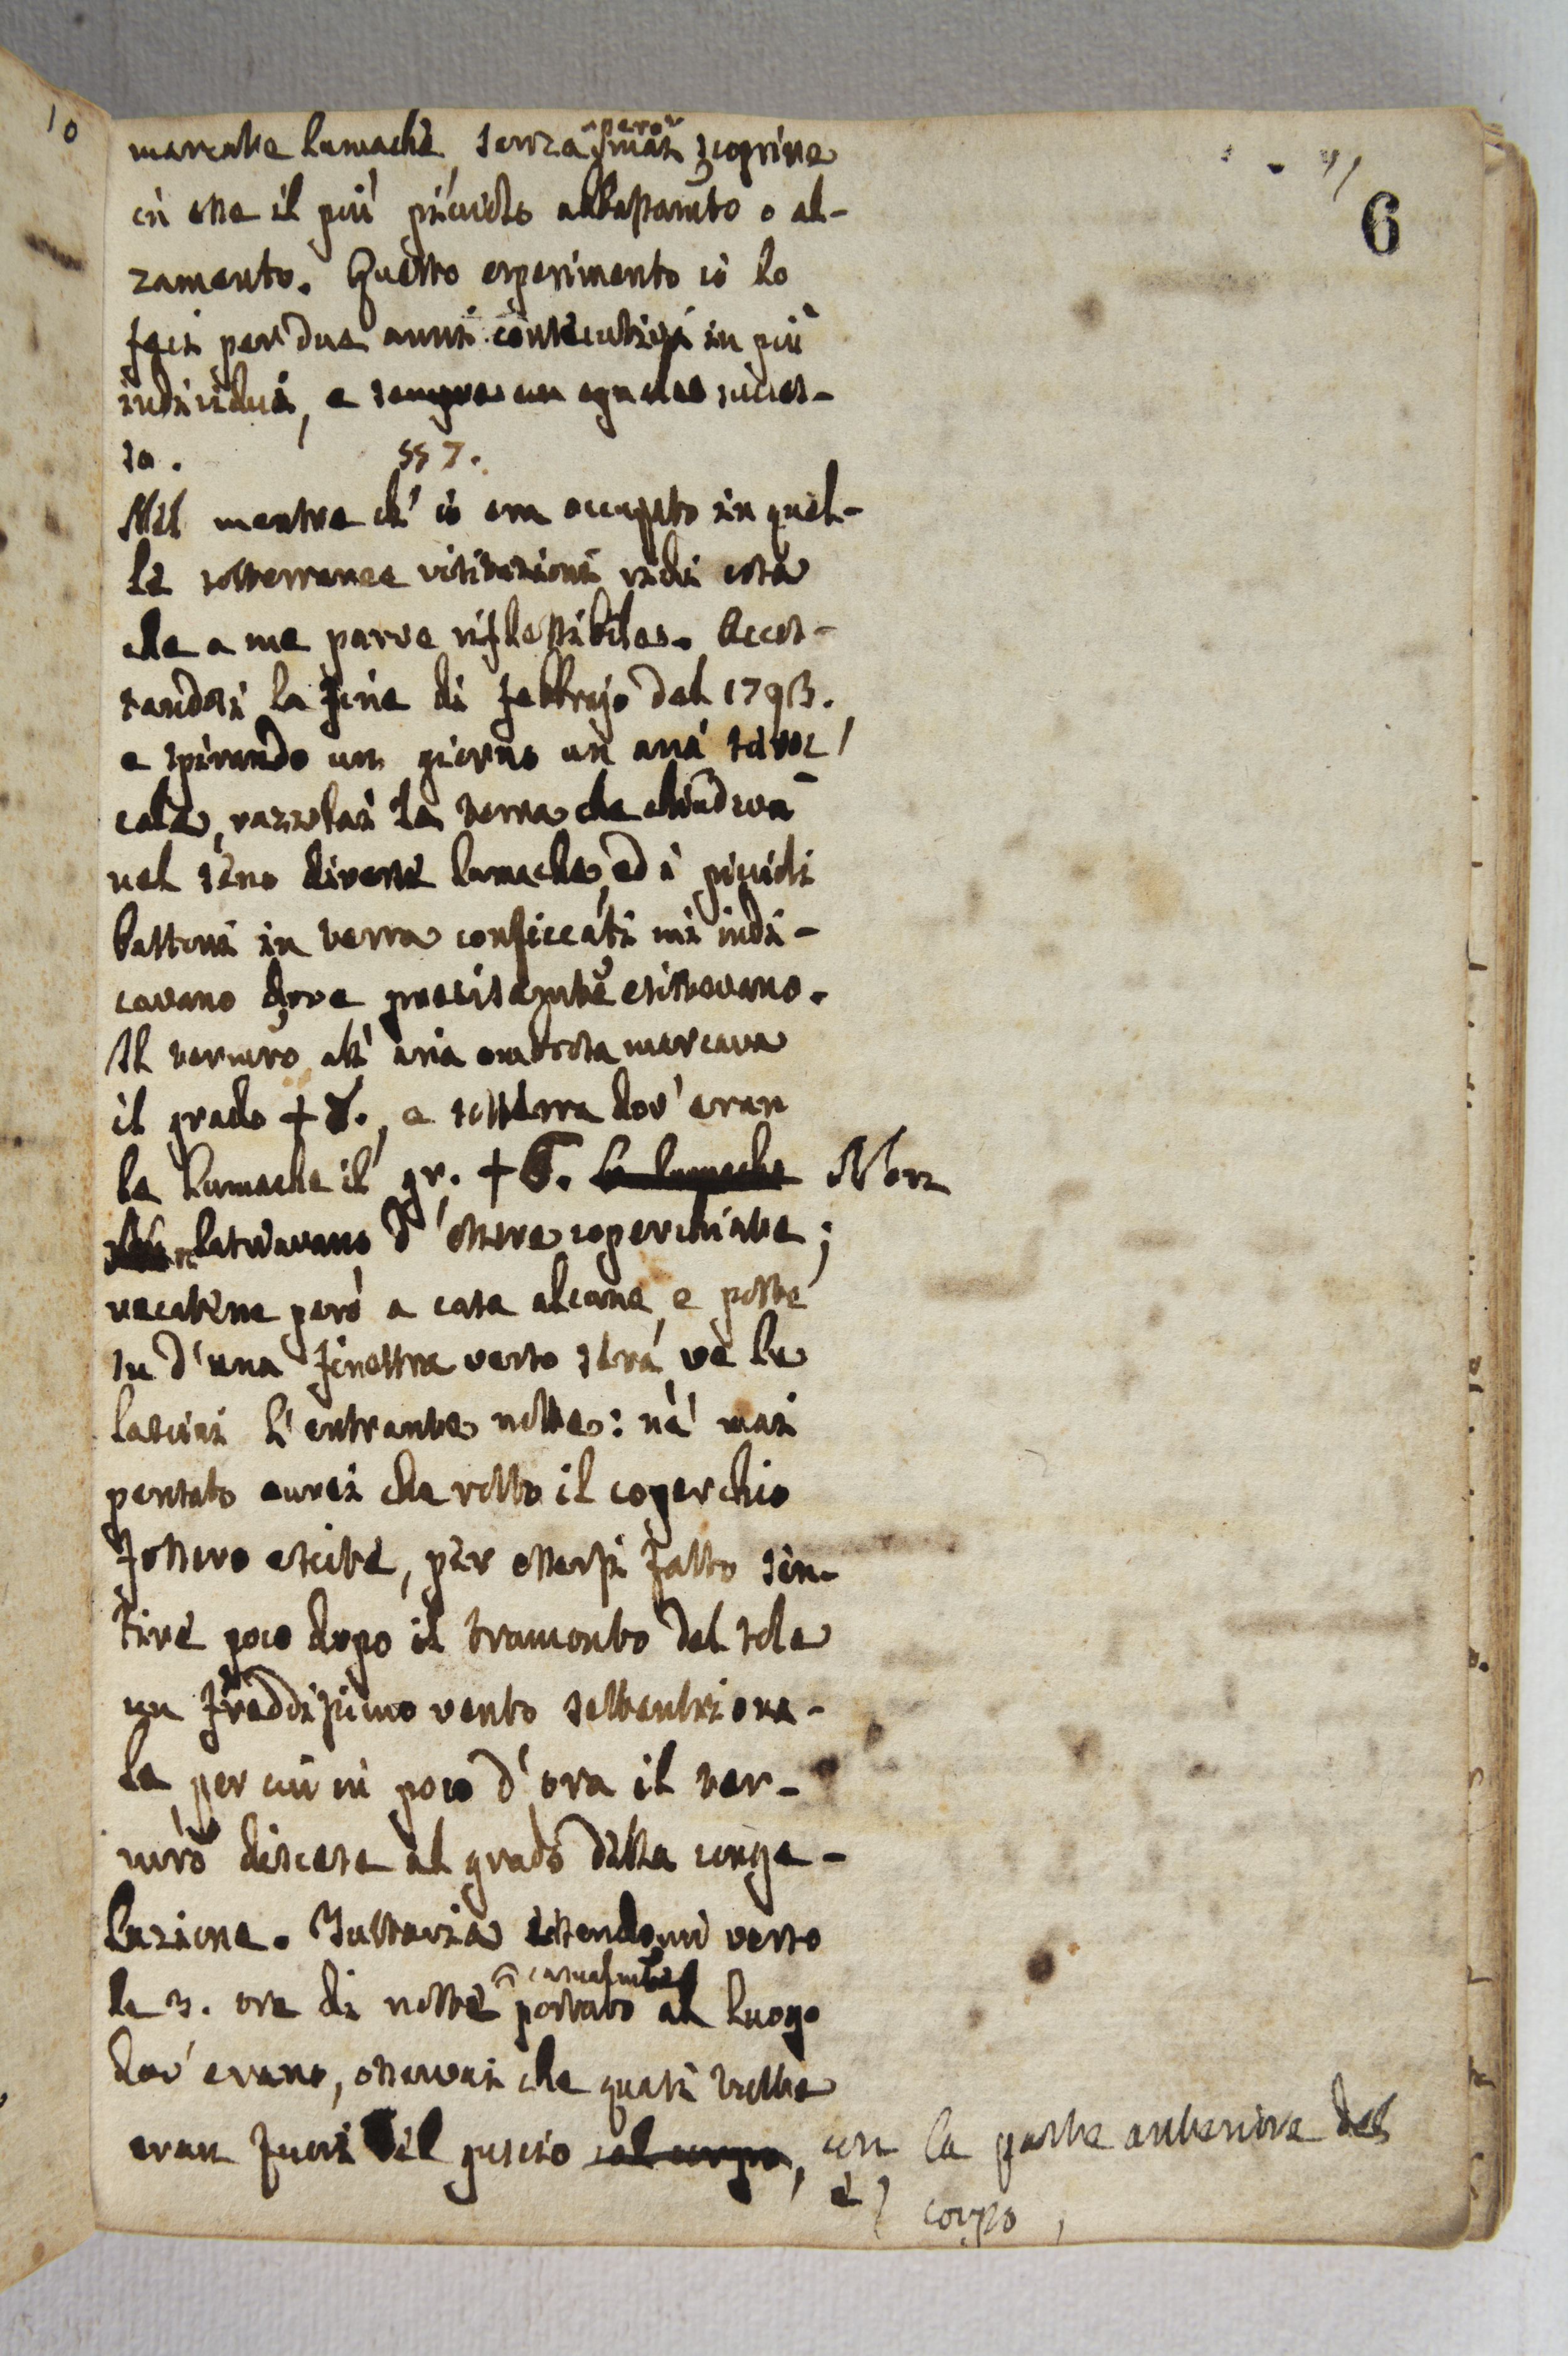 10
11
6
marcate lumache, senza però mai scoprire
in esse il più picciolo abbassamto o al-
zamento. Questo esperimento io lo
feci per due anni consecutivi in più
individui, e sempre un eguale succes-
so.
§§ 7.
Nel mentre ch'io era occupato in quel-
le sotterranee visitazioni vidi cosa
che a me parve riflessibile. Accos-
tandosi la fine di febbrajo del 1793.
e spirando un giorno un aria sciroc
cale, razzolai la terra che chiudeva
nel seno diverse lumache, ed i piccioli
bastoni in terra conficcati mi indi-
cavano dove precisamte esistevano.
Il termro all' aria ombrosa marcava
il grado + 8., e sotterra dov'eran
le lumache il gr. + 6. le lumache Non
lasciavano d'essere coperchiate;
recatene però a casa alcune, e poste
su d'una finestra verso sera, ve le
lasciai l'entrante notte: nè mai
pensato avrei che rotto il coperchio
fossero escite, per essersi fatto sen-
tire poco dopo il tramonto del sole
un freddissimo vento settentriona-
le, per cui in poco d'ora il ter-
mro discese al grado della conge-
lazione. Tuttavia essendomi verso
le 3. ore di notte casualmte portato al luogo
dov'erano, osservai che quasi tutte
eran fuori del guscio col corpo, con la parte anteriore del
corpo,